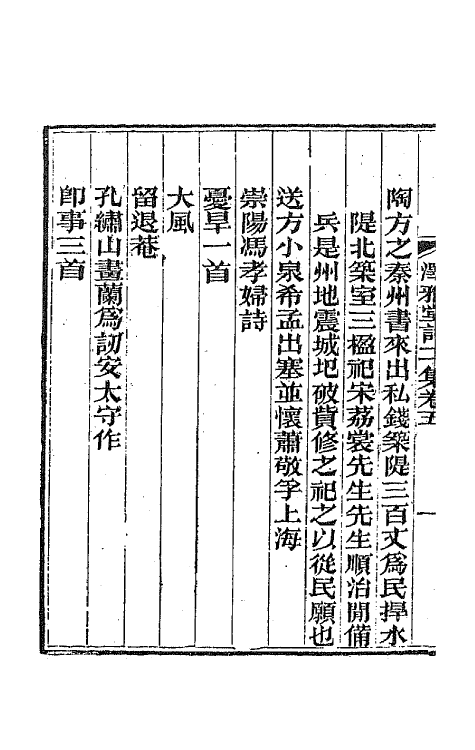 陶方之秦州書來出私錢築隄三百丈爲民捍水
隄北築室三楹祀宋荔裳先生先生順治閒備
兵是州地震城圮破貲修之祀之以從民願也
送方小泉希孟出塞並懷蕭敬孚上海
崇陽馮孝婦詩
憂旱一首
大風
留退菴
孔繡山畫蘭爲訒安太守作
卽事三首
濂雅堂詩二集卷五
一